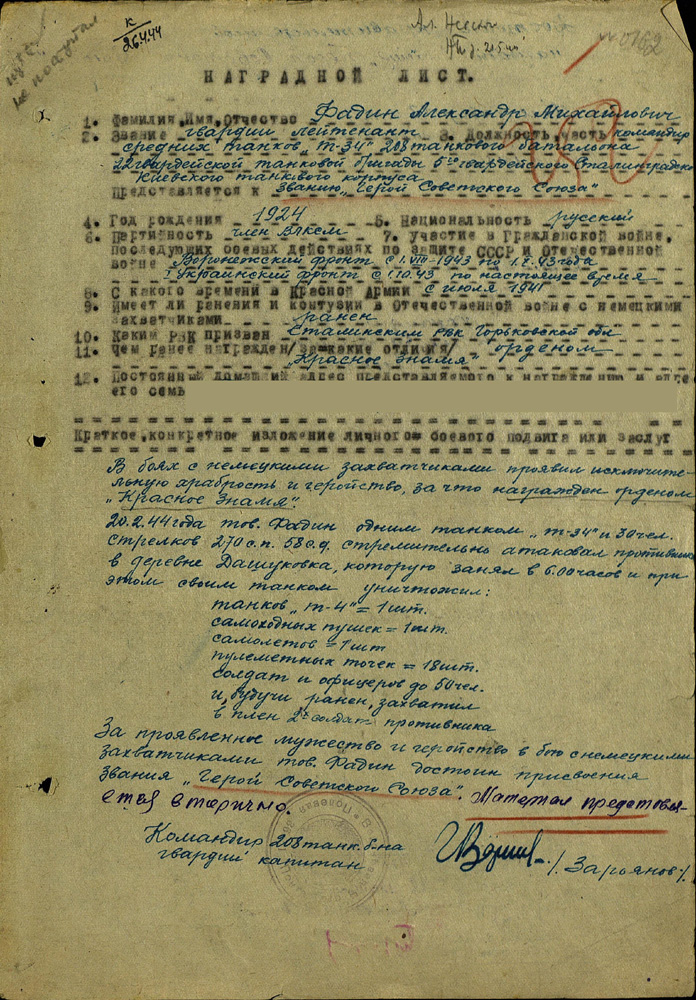 К
26.4.44
Ал. Невский
№ 0162
НАГРАДНОЙ ЛИСТ.
1. Фамилия, Имя, Отчество Фадин Александр Михайлович
2. Звание гвардии лейтенант 3. Должность, часть командир
средних танков „Т-34" 208 танкового батальона
22 гвардейской танковой бригады 5го гвардейского Сталинградско
Киевского танкового корпуса
Представляется к званию „Герой Советского Союза"
4. Год рождения 1924 5. Национальность русский
6. Партийность член ВЛКСМ 7. участие в Гражданской войне,
последующих боевых действиях по защите СССР и Отечественной
войне Воронежский фронт с 1.VIII-1943 по 1.X.43 года
I Украинский фронт с 1.10.43 по настоящее время
8. С какого времени в Красной Армии с июля 1941
9. Имеет ли ранения и контузии в Отечественной войне с немецкими
захватчиками ранен
10. Каким РВК призван Сталинским РВК Горьковской обл
11. Чем ранее награжден/за какие отличия/ орденом
„Красное Знамя"
12. Постоянный домашний адрес представляемого к награждению и адрес
его семь
Краткое, конкретное изложение личного боевого подвига или заслуг
В боях с немецкими захватчиками проявил исключите-
льную храбрость и геройство, за что награжден орденом
„Красное Знамя".
20.2.44 года тов. Фадин одним танком „Т-34" и 30 чел.
стрелков 270 с.п. 58 с.д. стремительно атаковал противника
в деревне Дашуковка, которую занял в 6.00 часов и при
этом своим танком уничтожил:
танков „Т-4" = 1 шт.
самоходных пушек = 1 шт.
самолетов = 1 шт
пулеметных точек = 18 шт.
солдат и офицеров до 50 чел.
и, будучи ранен, захватил
в плен 2х солдат противника
За проявленное мужество и геройство в бою с немецкими
захватчиками тов. Фадин достоин присвоения
звания „Герой Советского Союза". Материал представля-
ется вторично.
Командир 208 танк. б-на
гвардии капитан /Зароянов/.